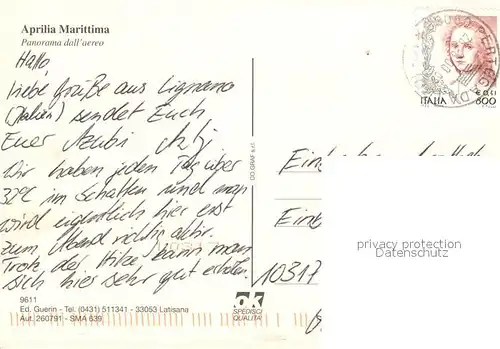 Aprilia Marittima
Panorama dall'aereo
Hallo
Liebe Grüße aus Lignano
(Italien) sendet Euch
Euer
Wir haben jeden Tag über
32°C im Schatten und man
wird eigentlich hier erst
zum Abend richtig aktiv.
Trotz der Hitze kann man
sich hier sehr gut erholen.
ITALIA
600
10317
privacy protection
Datenschutz
9611
Ed. Guerin - Tel. (0431) 511341 - 33053 Latisana
Aut. 260791 - SMA 639
ok
SPEDISCI
QUALITA'